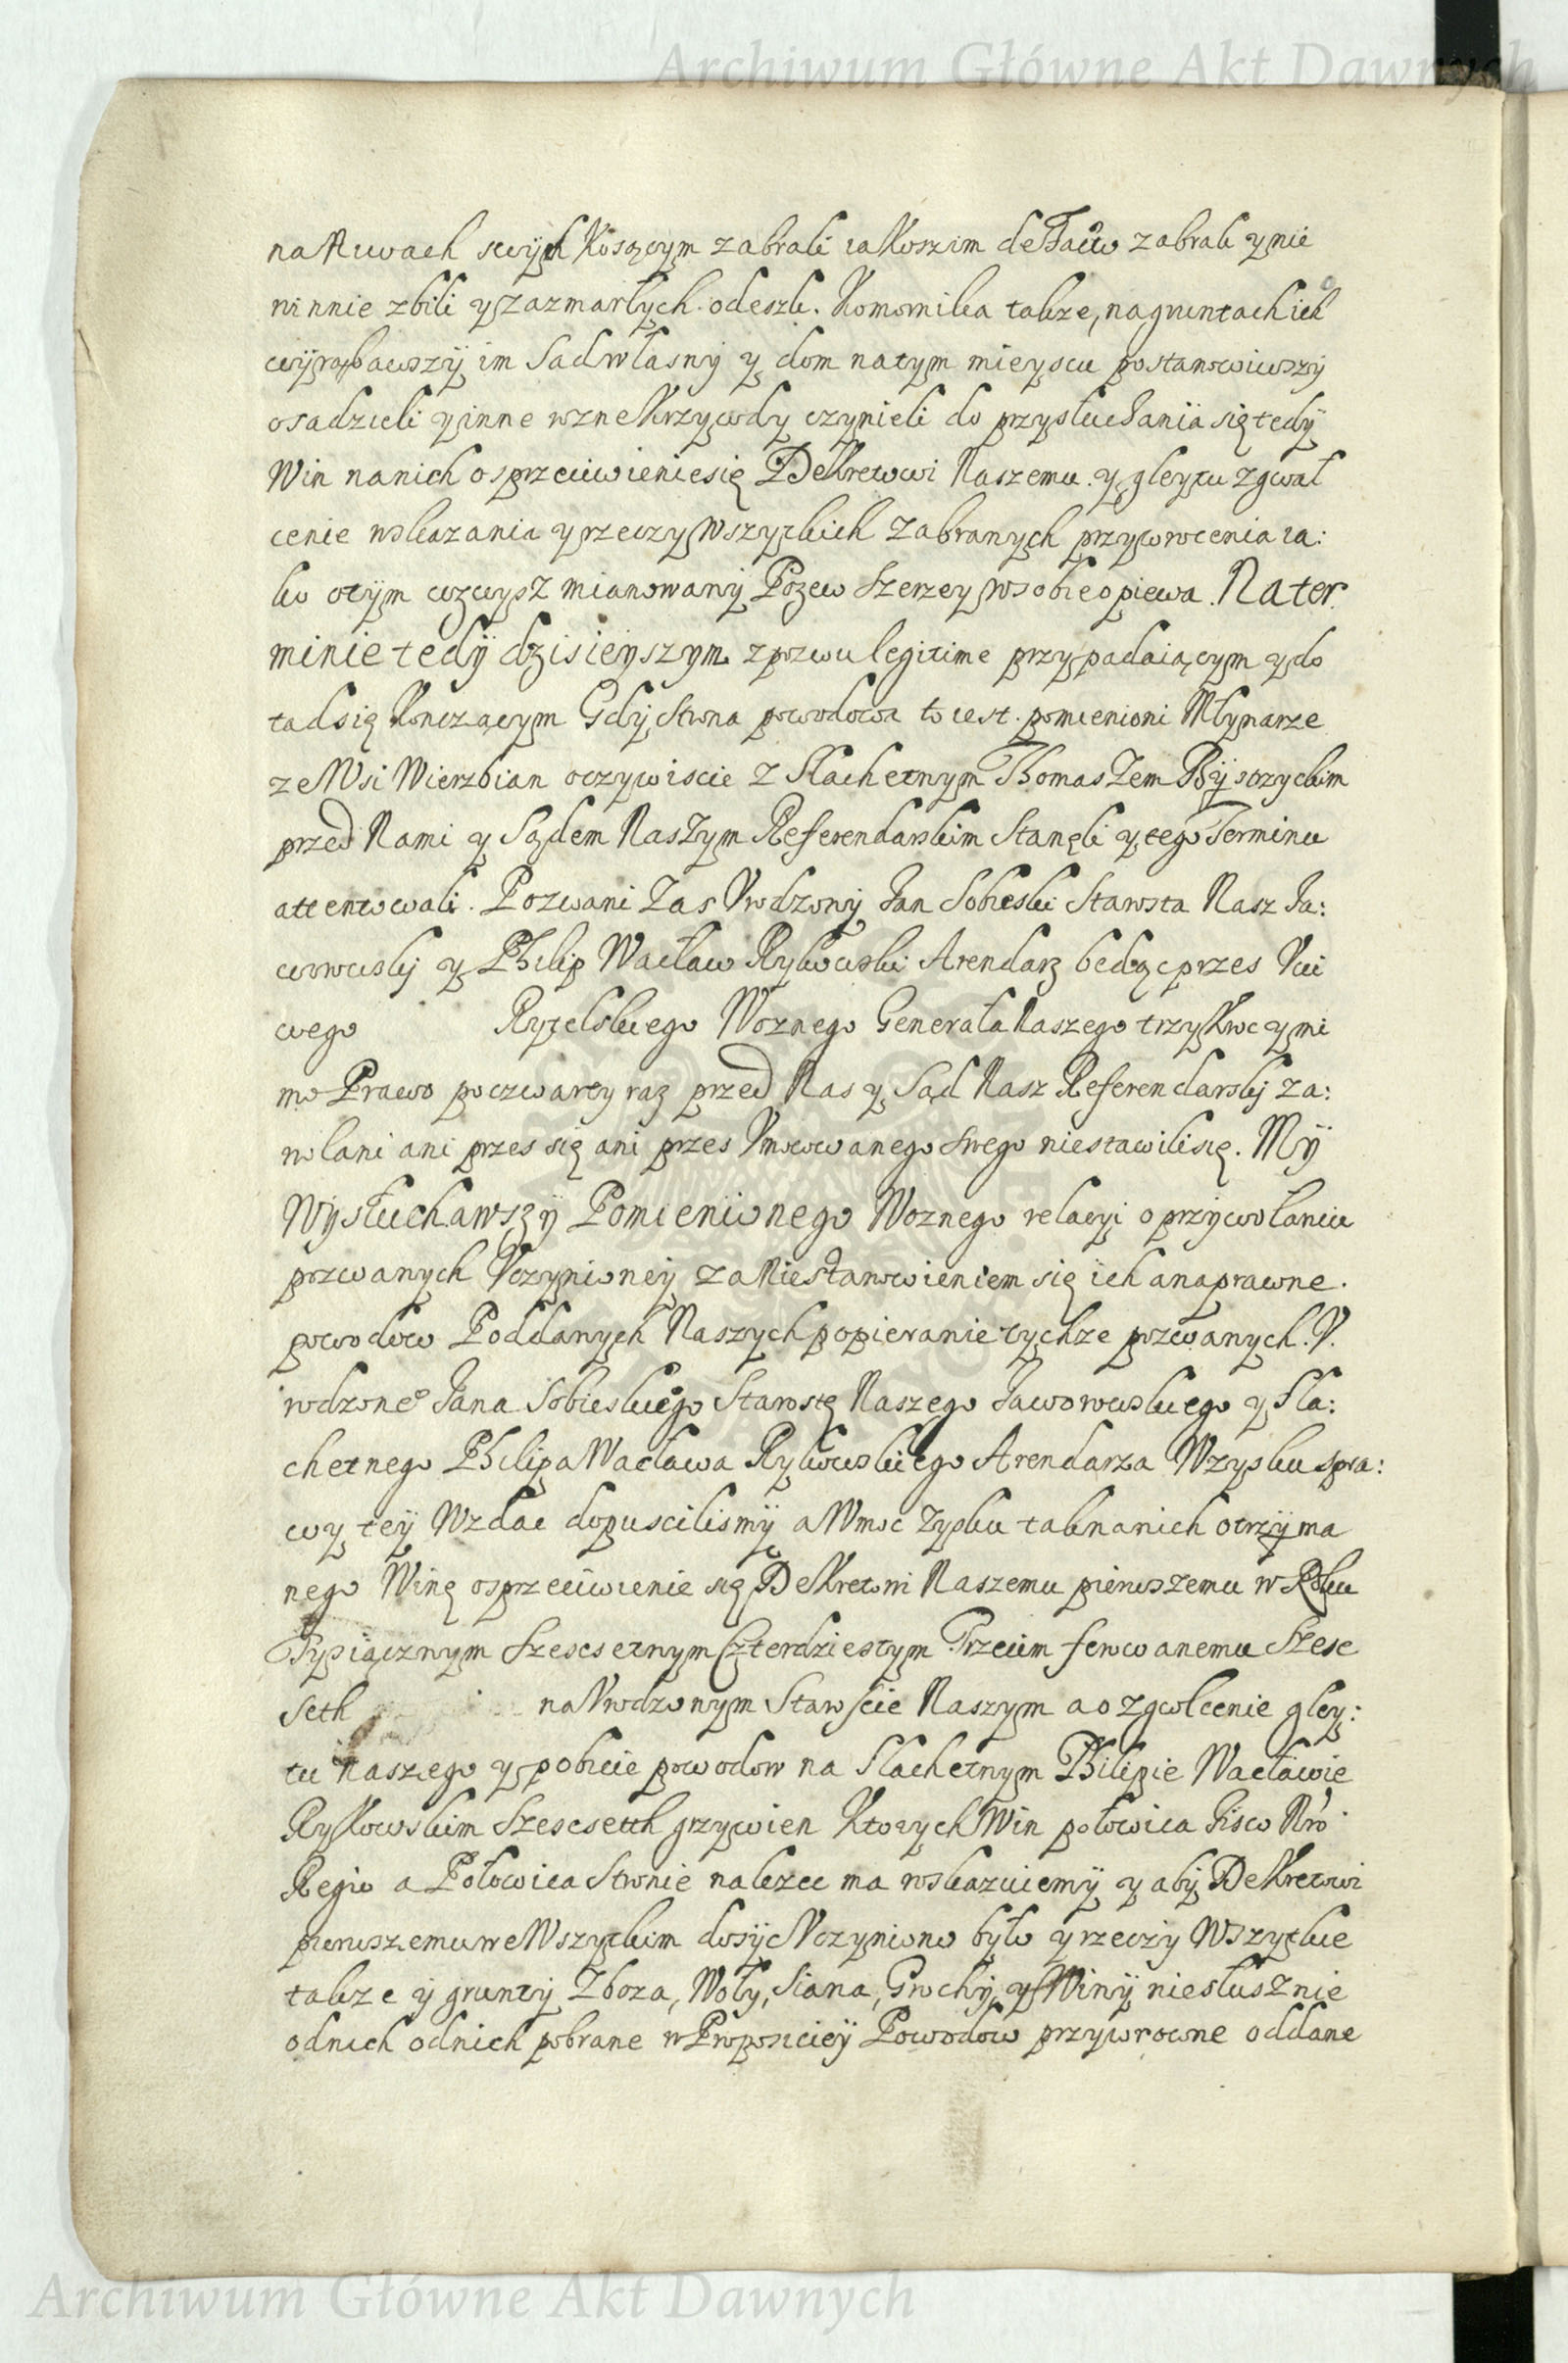 Archiwum Główne Akt Dawnych
na Niwach swych Kosącym zabrali za Koszim de Facto zabrali y nie
winnie zbili y za zmarłych odeszli. Komornika takze, na gruntach ich
wyrąbawszÿ im Sad własnÿ y dom na tym mieyscu postanowiwszÿ
osadzieli y inne rzne Krzywdy czynieli do przysłuchania się tedÿ
Win na nich o sprzeciwienie się Dekretowi Naszemu y gleytu zgwał
cenie wskazania y rzeczy Wszytkich zabranych przywrocenia ia:
ko o tÿm wzwysz mianowanÿ Pozew szerzey w sobie opiewa. Na ter
minie tedÿ dzisieÿszym z pozwu legitime przypadaiącym y do
tąd się Konczącym Gdÿ Strona powodowa to iest pomienioni Młynarze
ze Wsi Wierzbian oczywiscie z Slachetnym Thomaszem Bÿstrzyckim
przed Nami y Sądem Naszym Referendarskim Stanęli y tego Terminu
attentowali. Pozwani zas Vrodzonÿ Jan Sobieski Starosta Nasz Ja:
worowskij y Philip Wacław Rykowski Arendarz będąc przes Vcci
wego Ryzelskiego Woznego Generała Naszego trzykroc y mi
mo Prawo poczwarty raz przed Nas y Sąd Nasz Referendarskij za:
wołani ani przes się ani przes Vmocowanego swego nie stawili się. Mÿ
WÿsłuchawszÿPomienionego Woznego relacyi o przÿwołaniu
pozwanych Vczynioneÿ za Nie stanowieniem się ich a na prawne
powodow Poddanych Naszych popieranie tychze pozwanych V.
rodzone° Jana Sobieskiego Starostę Naszego Jaworowskiego y Sla:
chetnego Philipa Wacława Rykowskiego Arendarza W zysku spra:
wy teÿ Wzdac dopuscilismÿ a W moc zysku tak na nich otrzÿma
nego Winę o sprzeciwienie się Dekretowi Naszemu pierwszemu w Roku
Tysiącznym Szescsetnym Czterdziestym Trzecim ferowanemu Szesc
seth na Vrodzonym Staroscie Naszym a o zgwołcenie gley:
tu Naszego y pobicie powodow na Slachetnym Philipie Wacławie
Rykowskim Szescseth grzywien Ktorych Win połowica Fisco Nro
Regio a Połowica Stronie nalezec ma wskazuiemÿ y abÿ Dekretowi
pierwszemu we Wszytkim dosÿc Vczyniono było y rzeczÿ Wszytkie
takze ÿ gruntÿ Zboza, Woły, Siana, Grochÿ, y Winÿ niesłusznie
od nich od nich pobrane w Proposiciey Powodow przywrocone oddane
Archiwum Główne Akt Dawnych